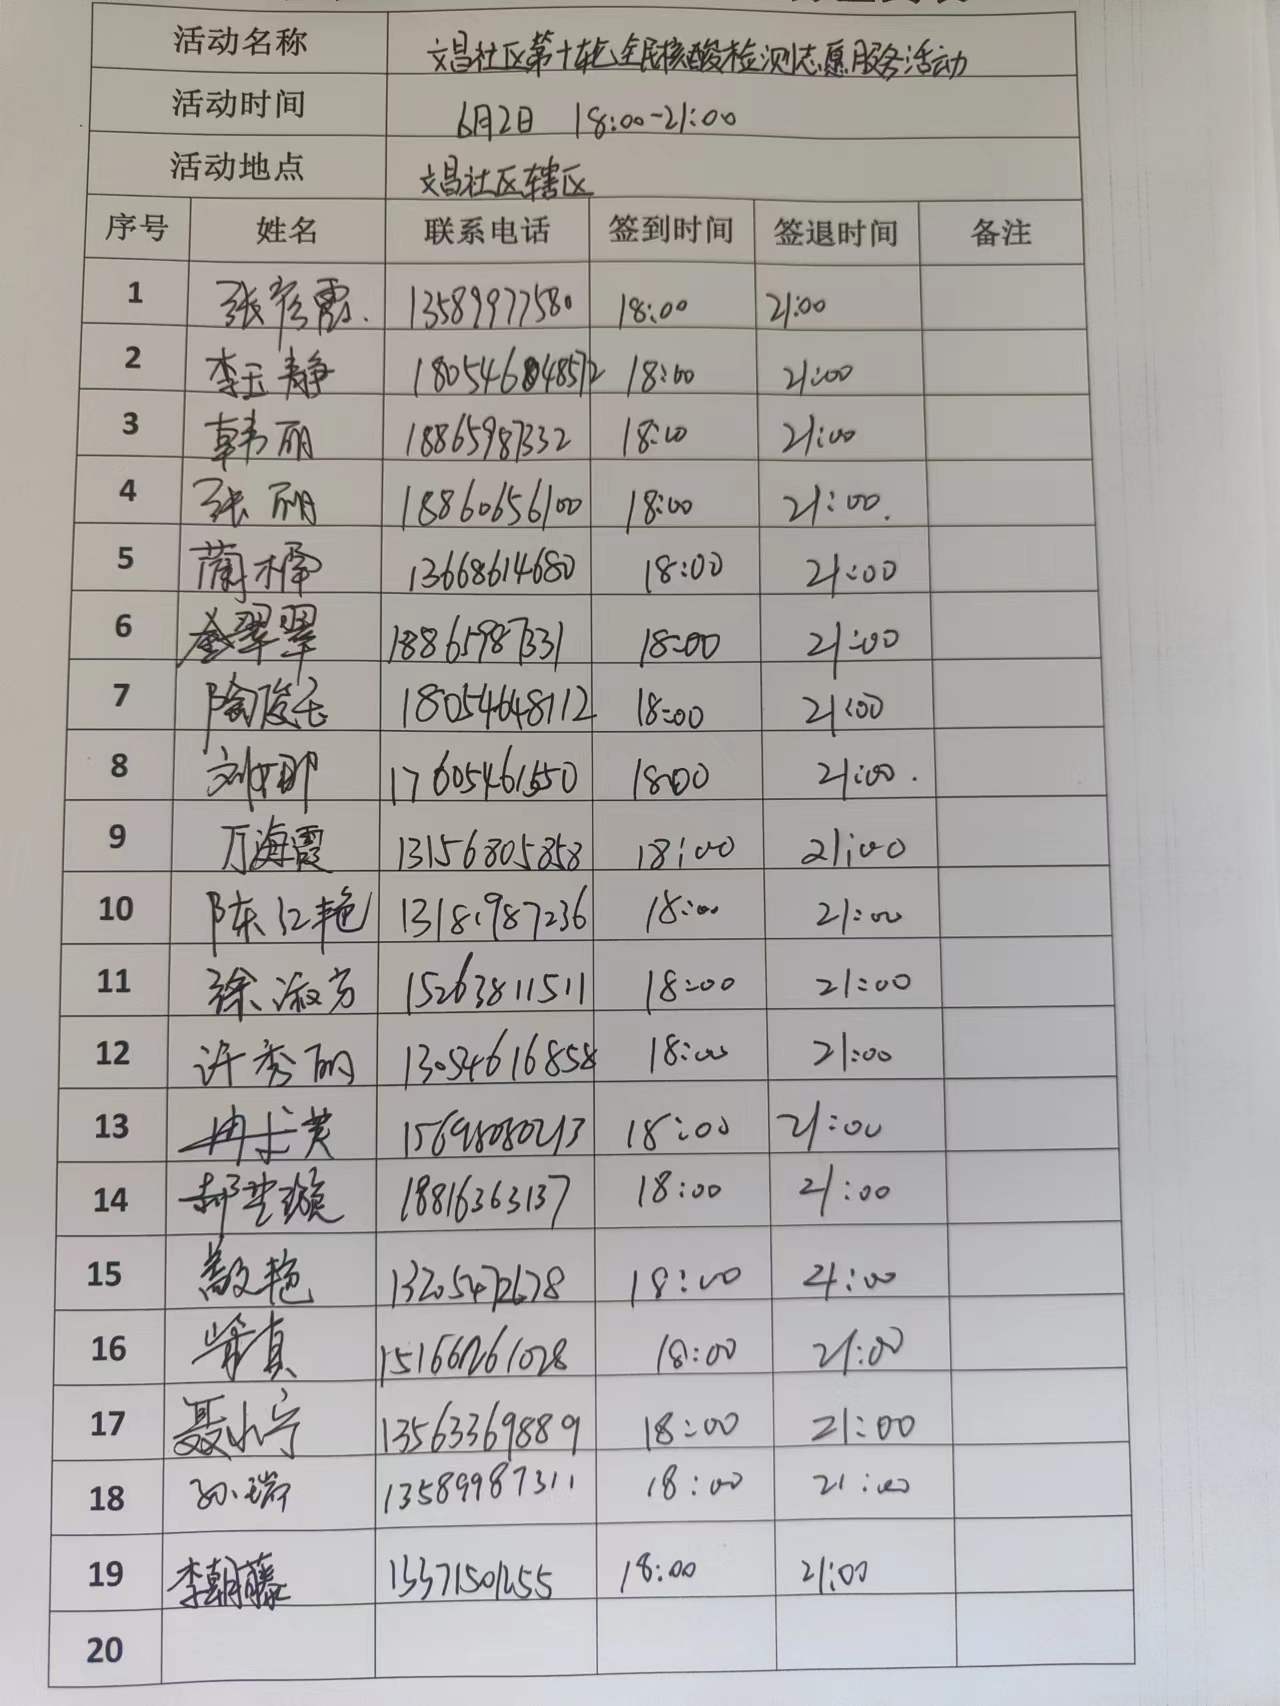 活动名称 文昌社区第十轮全民核酸检测志愿服务活动
活动时间 6月2日 18:00-21:00
活动地点 文昌社区辖区
序号 姓名 联系电话 签到时间 签退时间 备注
1 张彦霞 13589977580 18:00 21:00
2 李玉静 18:00 21:00
3 韩丽 18865987332 18:00 21:00
4 张丽 18860656100 18:00 21:00.
5 蔺 13668614680 18:00 21:00
6 翠翠 18865987331 18:00 21:00
7 陶俊玉 18054648112 18:00 21:00
8 刘娜 17605461550 18:00 21:00.
9 万海霞 13156805858 18:00 21:00
10 陈红艳 13181987236 18:00 21:00
11 徐淑芳 15263811511 18:00 21:00
12 许秀丽 13054616858 18:00 21:00
13 15698080213 18:00 21:00
14 郝楚璇 18816363137 18:00 21:00
15 艳 18:00 21:00
16 柴真 15166261028 18:00 21:00
17 聂小宁 13563369889 18:00 21:00
18 孙瑞 13589987311 18:00 21:00
19 李朝藤 13371501255 18:00 21:00
20